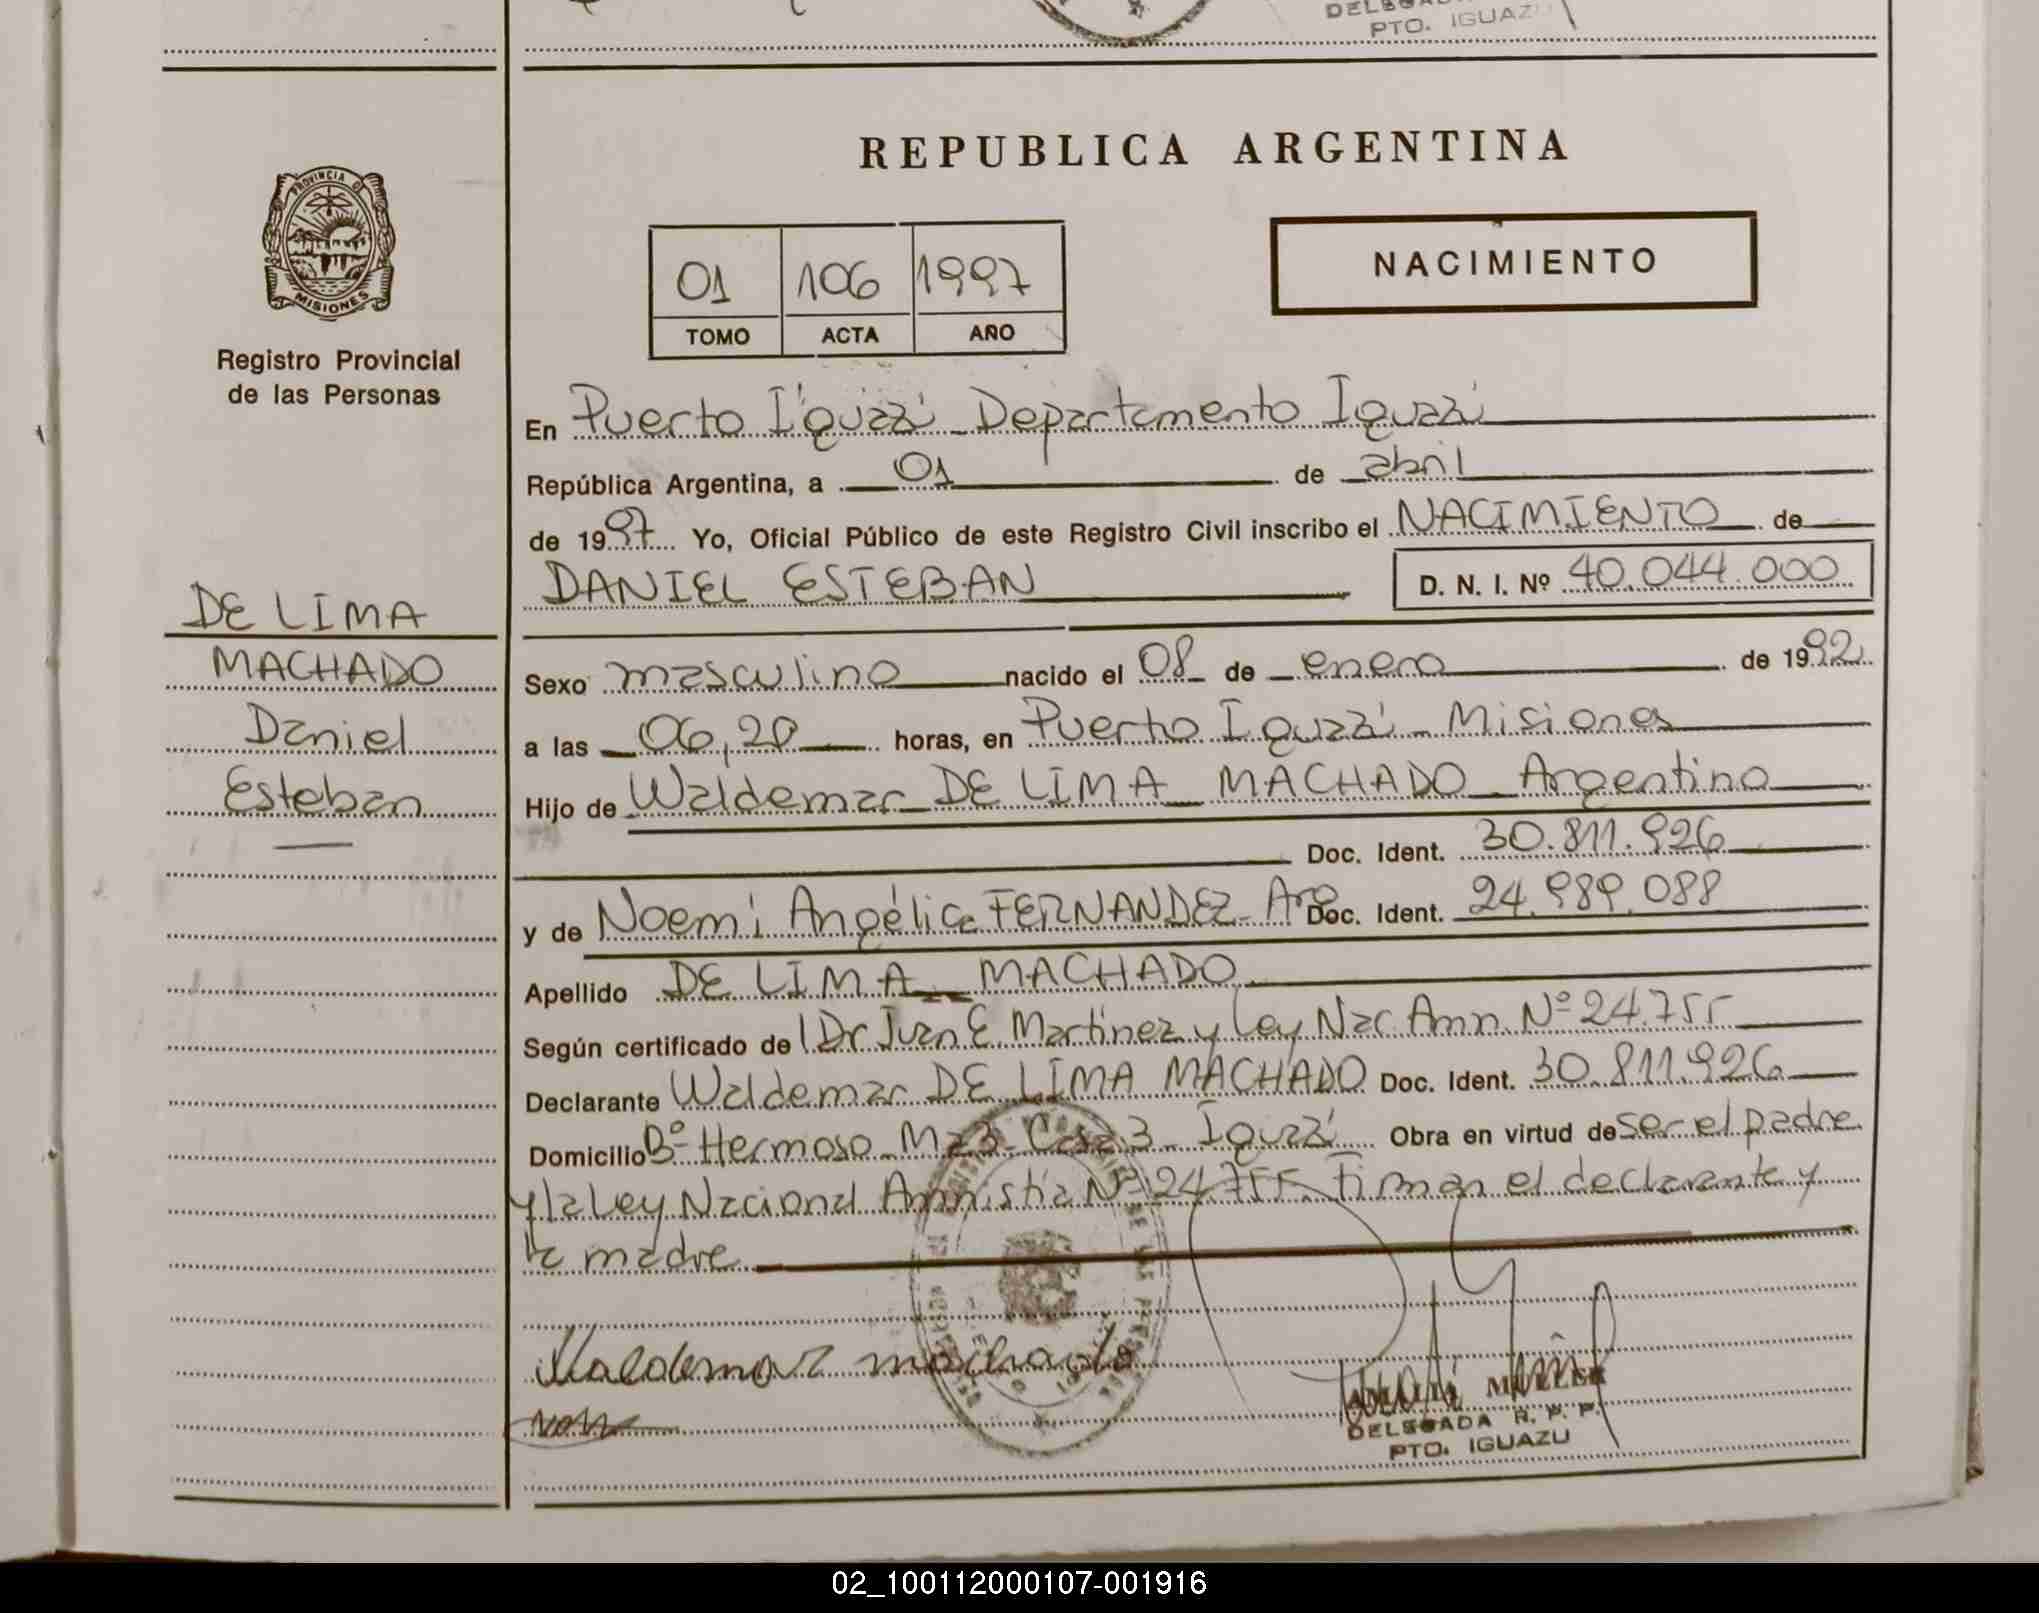 PTO. IGUAZU
PROVINCIA D
MISIONES
Registro Provincial
de las Personas
DE LIMA
MACHADO
Daniel
Esteban
REPUBLICA ARGENTINA
01 106 1997
TOMO ACTA AÑO
NACIMIENTO
En Puerto Iguazú Departamento Iguazú
República Argentina, a 01 de abril
de 1997 Yo, Oficial Público de este Registro Civil inscribo el NACIMIENTO de
DANIEL ESTEBAN D. N. I. Nº 40.044.000
Sexo masculino nacido el 08 de enero de 1992
a las 06,20 horas, en Puerto Iguazú Misiones
Hijo de Waldemar DE LIMA MACHADO Argentino
Doc. Ident. 30.811.926
y de Noemí Angélica FERNANDEZ Arg Doc. Ident. 24.989.088
Apellido DE LIMA MACHADO
Según certificado de l Dr Juan E Martínez y Ley Nac Amn Nº 24.755
Declarante Waldemar DE LIMA MACHADO Doc. Ident. 30.811.926
Domicilio Bº Hermoso Mz 3 Casa 3 Iguazú Obra en virtud de ser el padre
y la Ley Nacional Amnistía Nº 24755 Firman el declarante y
la madre
Waldemar machado
DELEGADA R. P. P.
PTO. IGUAZU
02_100112000107-001916